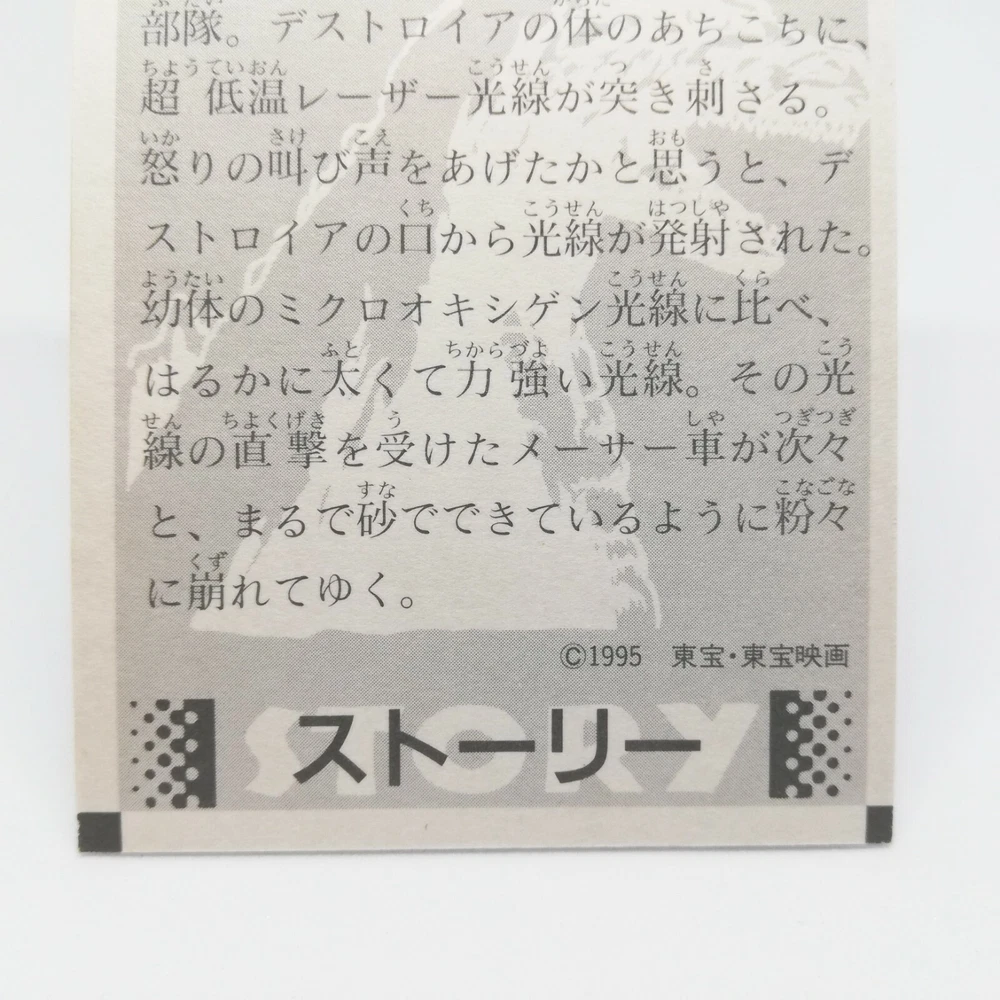 部隊。デストロイアの体のあちこちに、
超低温レーザー光線が突き刺さる。
怒りの叫び声をあげたかと思うと、デ
ストロイアの口から光線が発射された。
幼体のミクロオキシゲン光線に比べ、
はるかに太くて力強い光線。その光
線の直撃を受けたメーサー車が次々
と、まるで砂でできているように粉々
に崩れてゆく。
©1995 東宝・東宝映画
STORY
ストーリー